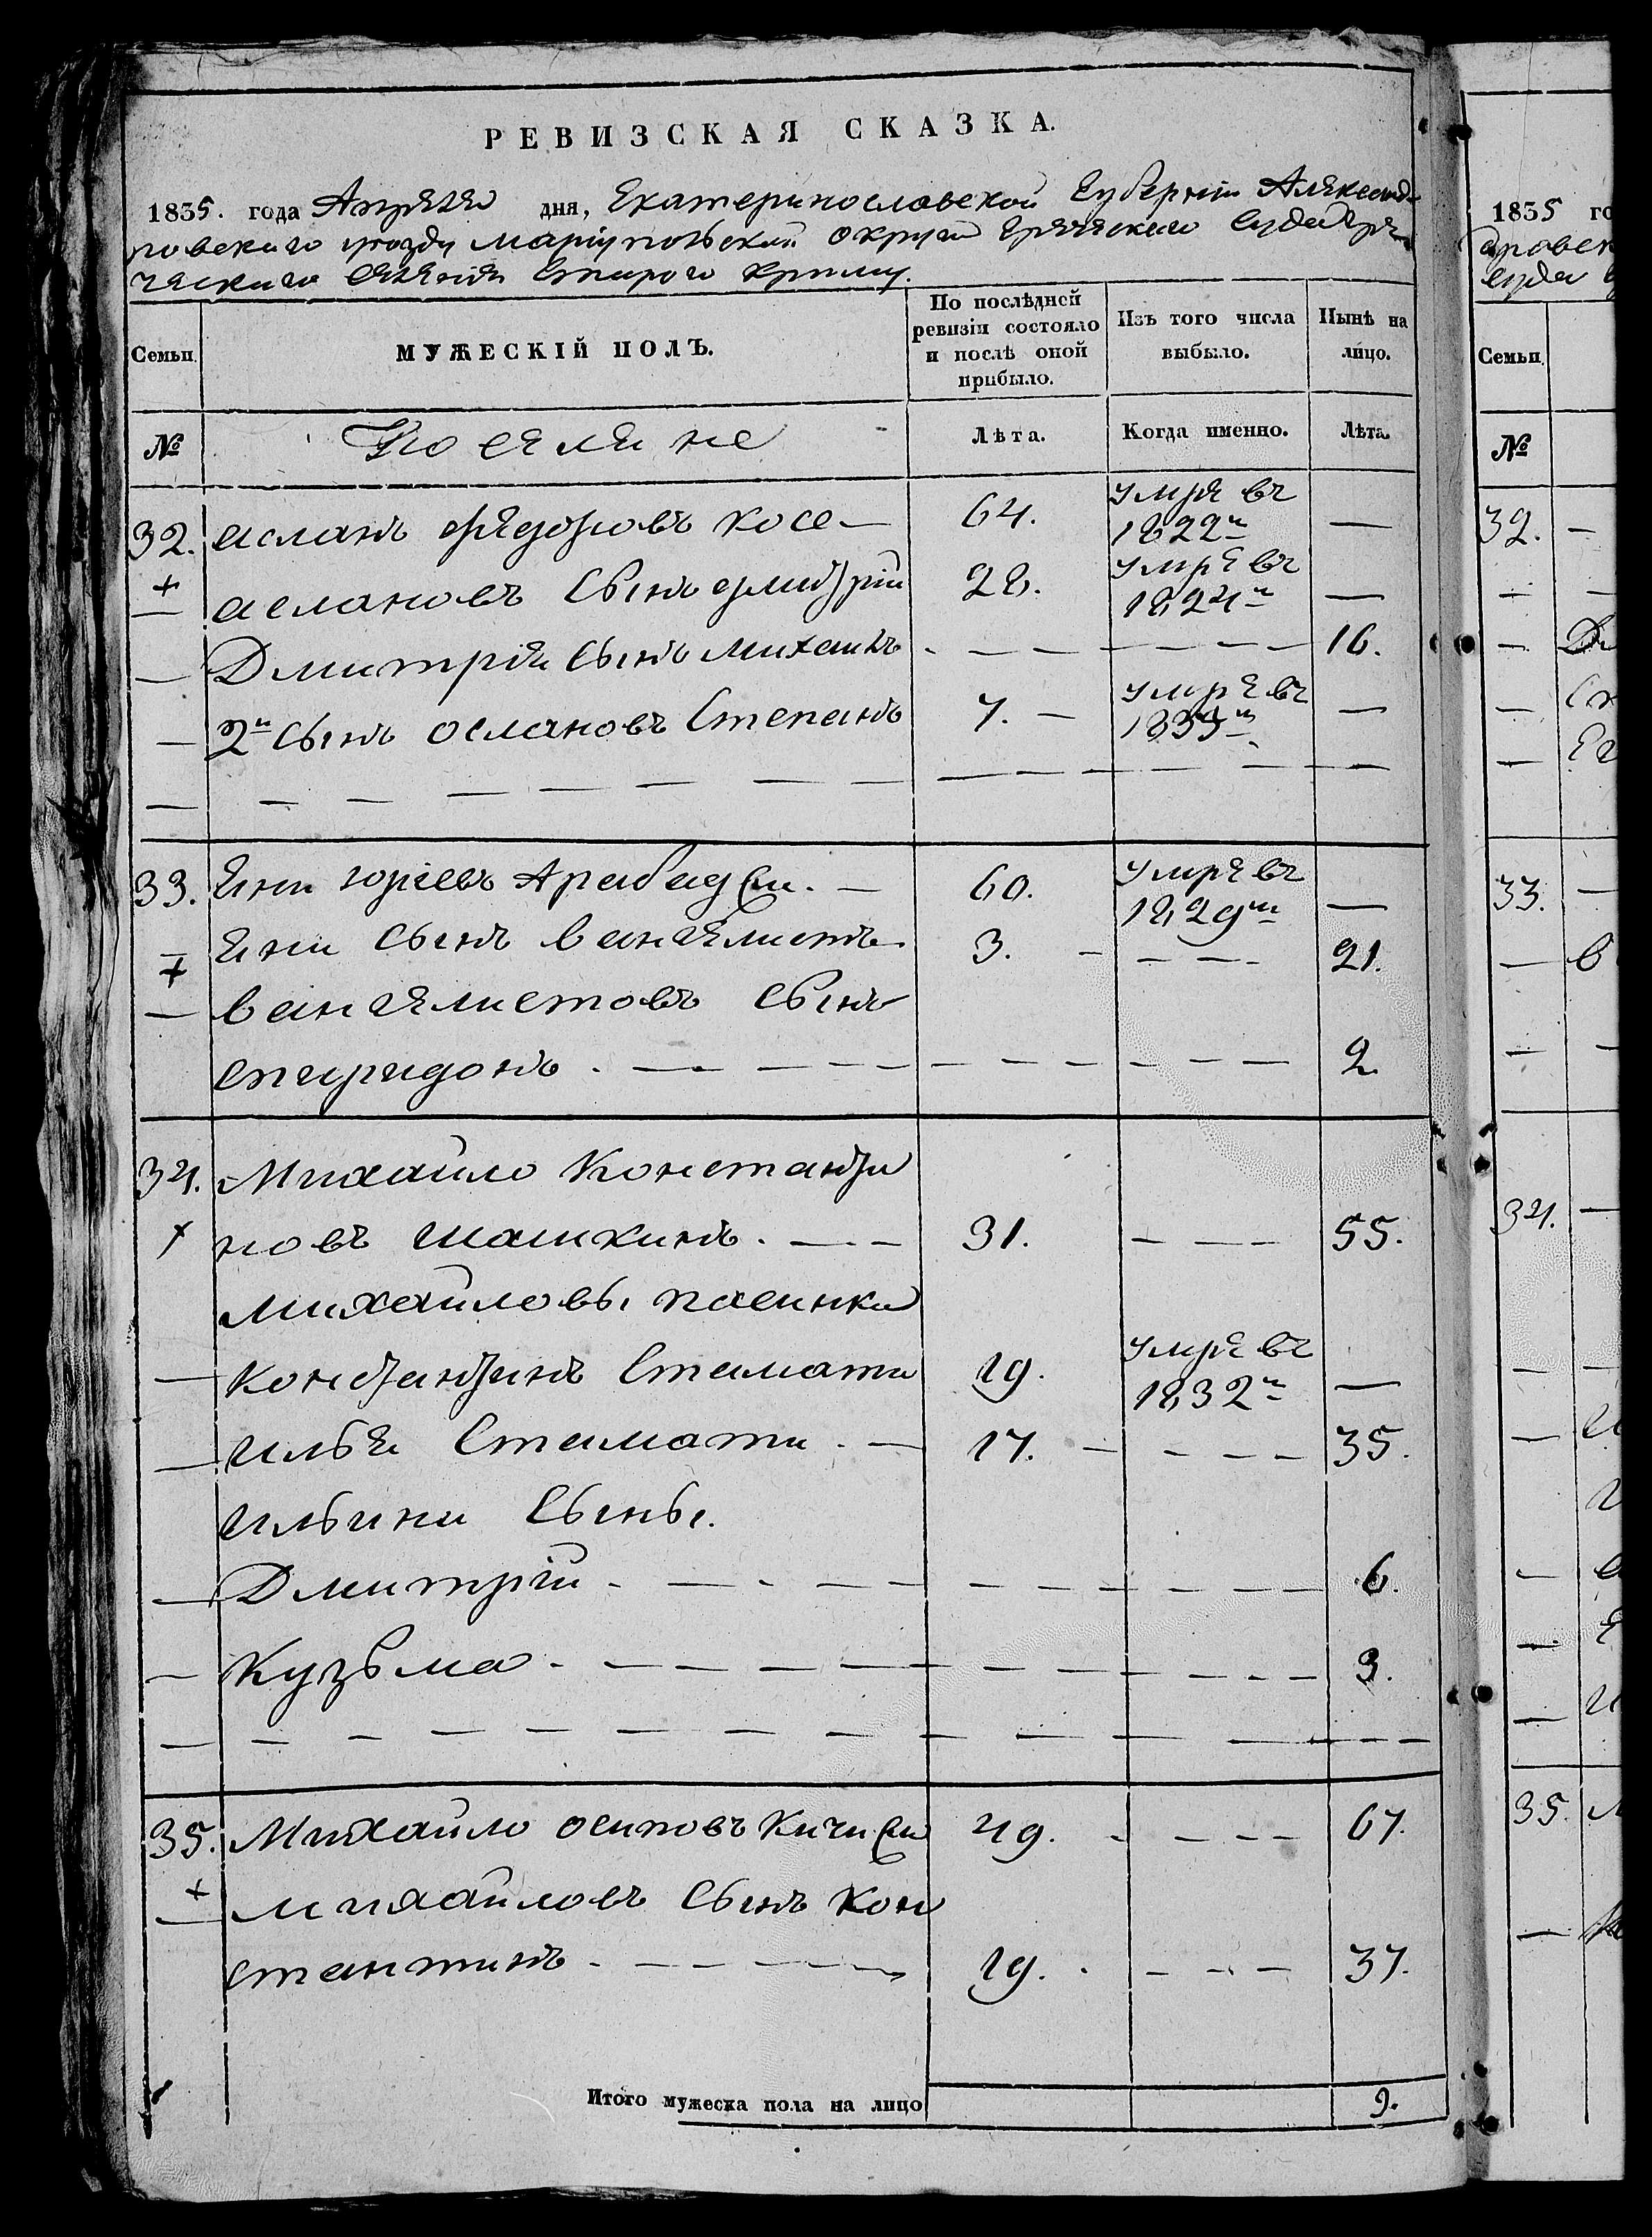 РЕВИЗСКАЯ СКАЗКА.
1835. года Апреля дня, Екатеринославской Губерніи Александ-
ровскаго уезда Маріупольской округи Греческаго Суда Гре-
ческаго селенія Стараго Крыма.
Семьи. МУЖЕСКІЙ ПОЛЪ. По послѣдней ревизіи состояло и послѣ оной прибыло. Изъ того числа выбыло. Нынѣ на лицо.
№ Поселяне Лѣта. Когда именно. Лѣта.
32. асланъ федоровъ косе — 64. умре въ 1822м —
+ аслановъ сынъ дмитрій 28. умре въ 1824м —
— Дмитрія сынъ михаилъ - — — — — — 16.
— 2й сынъослановъ Степанъ 7. — умре въ —
33. Яни юріевъ Арабадси. — 60. умре въ 1829м —
+ Яни сынъ вангелистъ 3. - — — - 21.
— вангелистовъ сынъ
спиридонъ. — — — — 2.
34. Михайло Константи
+ новъ шашкинъ. — 31. — — — 55.
михайловы пасинки
— константинъ Стамати 19. умре въ 1832м —
— илья Стамати. — 17. — — — 35.
ильины сыны.
— Дмитрій - — — — — 6.
— Кузьма - — — — — 3.
35. Михайло осиповъ Кичиси 49. - — — — 67.
+ михайловъ сынъ кон
стантинъ - — — — 19. - — — — 37.
Итого мужеска пола на лицо 9.
1835 го
дровск
суда
Семьи.
№
32. —
33. —
34. —
35. М